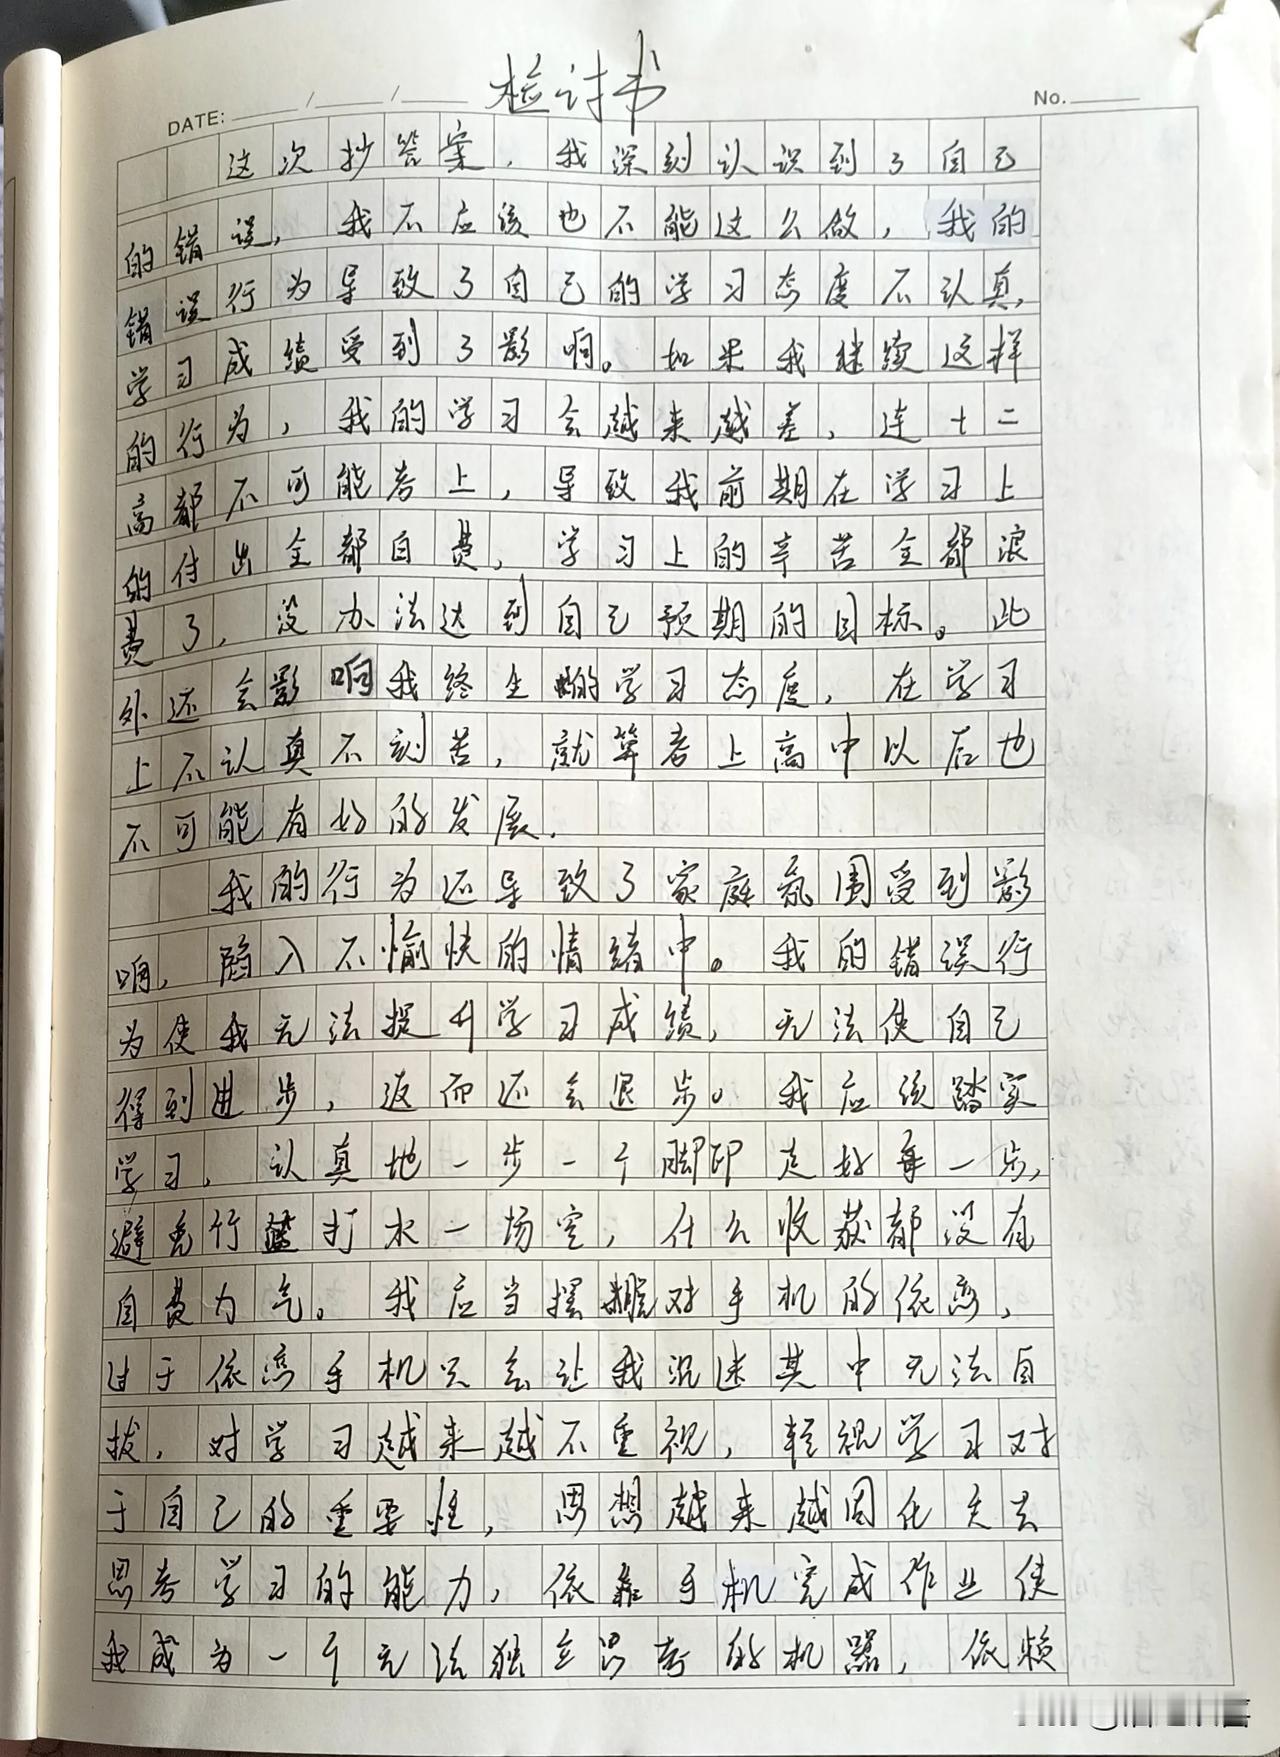 检讨书
DATE: / / No.
这次抄答案，我深刻认识到了自己
的错误，我不应该也不能这么做，我的
错误行为导致了自己的学习态度不认真，
学习成绩受到了影响。如果我继续这样
的行为，我的学习会越来越差，连十二
高都不可能考上，导致我前期在学习上
的付出全都白费，学习上的辛苦全都浪
费了，没办法达到自己预期的目标。此
外还会影响我终生的学习态度，在学习
上不认真不刻苦，就算考上高中以后也
不可能有好的发展.
我的行为还导致了家庭氛围受到影
响，陷入不愉快的情绪中。我的错误行
为使我无法提升学习成绩，无法使自己
得到进步，返而还会退步。我应该踏实
学习，认真地一步一个脚印走好每一步，
避免竹篮打水一场空，什么收获都没有
白费力气。我应当摆脱对手机的依恋，
过于依恋手机只会让我沉迷其中无法自
拔，对学习越来越不重视，轻视学习对
于自己的重要性，思想越来越固化失去
思考学习的能力，依靠手机完成作业使
我成为一个无法独立思考的机器，依赖